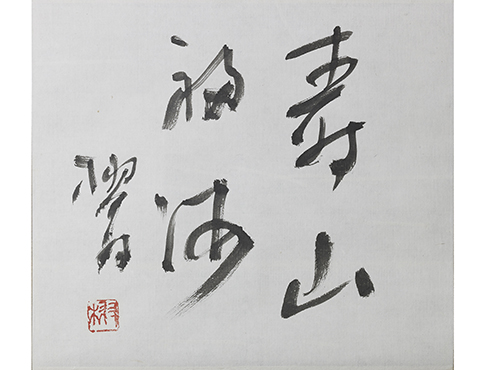 寿山
福海